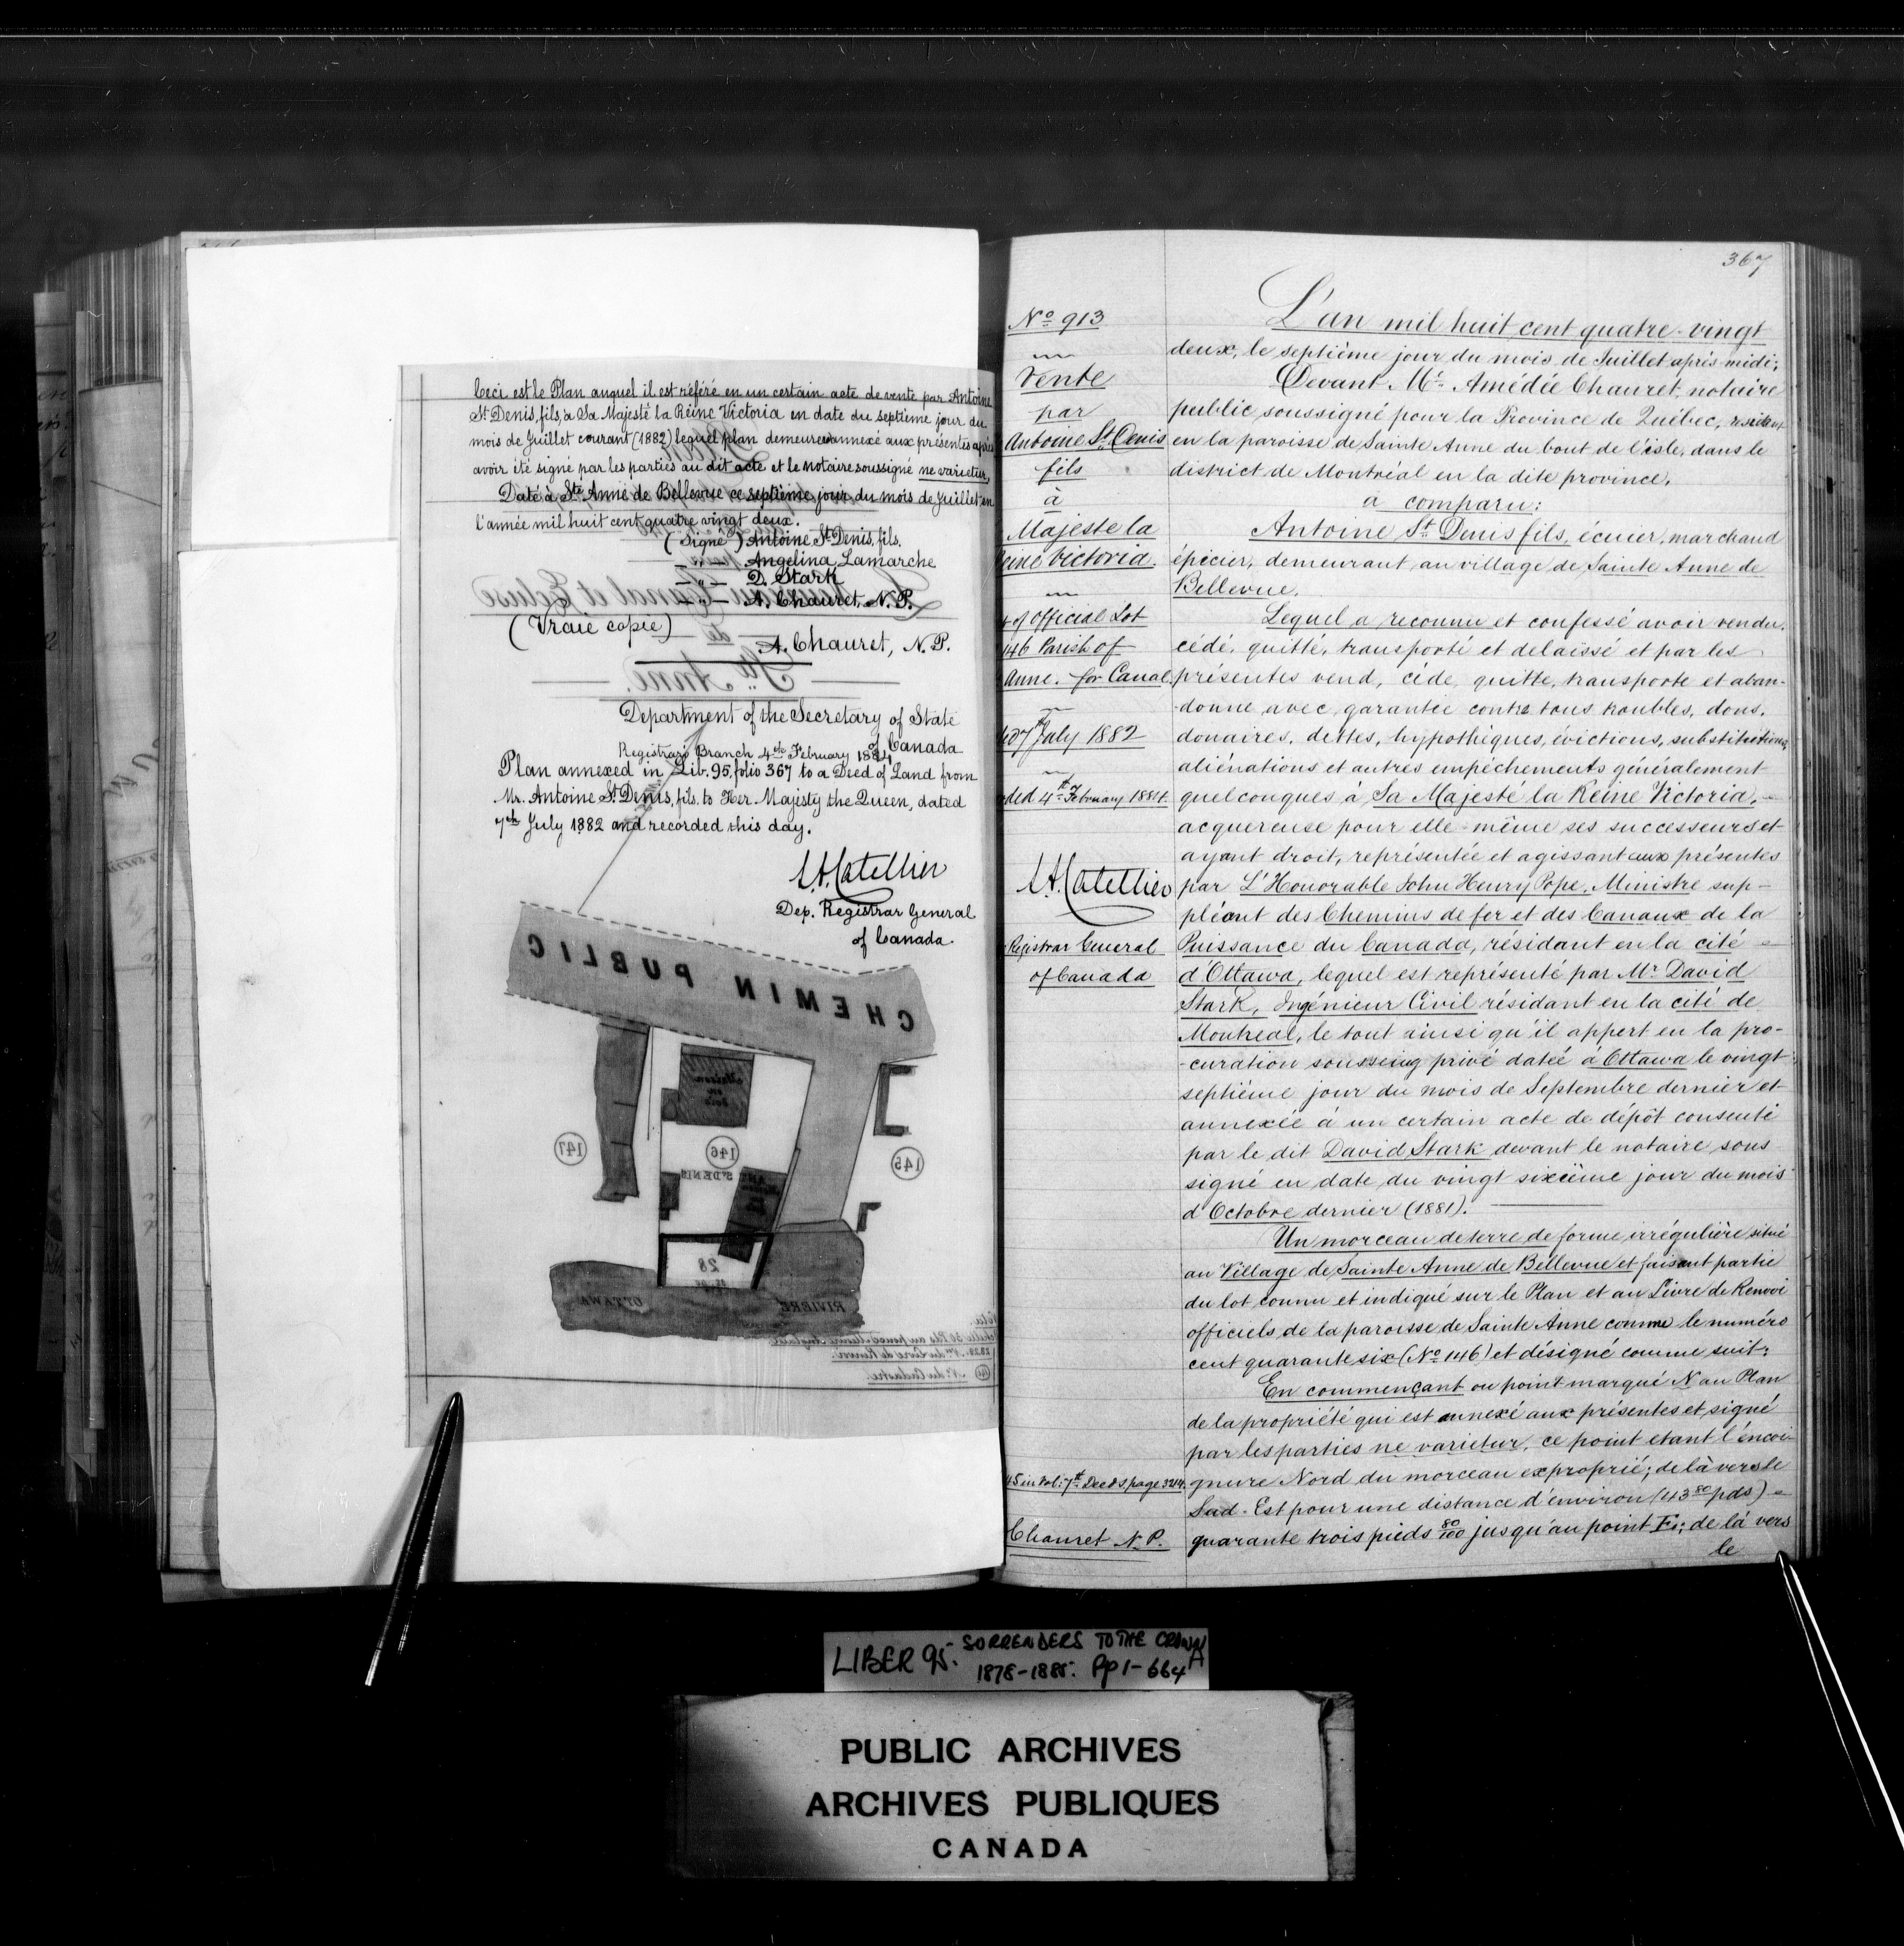 Ceci est le Plan auquel il est référé en un certain acte de vente par Antoine
St Denis, fils, à Sa Majesté la Reine Victoria en date du septième jour du
mois de Juillet courant (1882) lequel plan demeure annexé aux présentes après
avoir été signé par les parties au dit acte et le notaire soussigné ne varietur,
Daté à Ste Anne de Bellevue ce septième jour du mois de Juillet en
l'année mil huit cent quatre vingt deux.
(Signé) Antoine St Denis, fils.
— " — Angelina Lamarche
— " — D. Stark
— " — A. Chauret, N. P.
(Vraie copie)
A. Chauret, N. P.
Plan
Canal et Ecluse
de
Ste Anne.
Department of the Secretary of State
of Canada
Registrar's Branch 4th February 1884
Plan annexed in Lib. 95, folio 367 to a Deed of Land from
Mr. Antoine St Denis, fils. to Her Majesty the Queen, dated
7th July 1882 and recorded this day.
L. A. Catellier
Dep. Registrar General
of Canada.
CHEMIN PUBLIC
Maison
en
bois
147
146
145
ANT
ST DENIS
28
RIVIERE OTTAWA
No du Livre de Renvoi.
No du Cadastre.
367
No 913
Vente
par
Antoine St Denis
fils
à
Majeste la
Reine Victoria.
of Official Lot
146 Parish of
Anne. for Canal.
7 July 1882
ded 4th February 1884.
L. A. Catellier
Registrar General
of Canada
45 in Vol: 7th Deeds, page 324.
Chauret N. P.
L'an mil huit cent quatre-vingt
deux, le septième jour du mois de Juillet après midi;
Devant Mr. Amédée Chauret, notaire
public, soussigné pour la Province de Québec, résident
en la paroisse de Sainte Anne du bout de l'isle, dans le
district de Montréal en la dite province,
a comparu:
Antoine St Denis fils, écuier, marchand
épicier, demeurant au village de Sainte Anne de
Bellevue.
Lequel a reconnu et confessé avoir vendu,
cédé, quitté, transporté et delaissé et par les
présentes vend, cède, quitte, transporte et aban-
-donne avec garantie contre tous troubles, dons,
douaires, dettes, hypothèques, évictions, substitutions,
aliénations et autres empêchements généralement
quelconques à Sa Majesté la Reine Victoria, -
acquereuse pour elle-même ses successeurs et
ayant droit, représentée et agissant aux présentes
par L'Honorable John Henry Pope, Ministre sup-
pléant des Chemins de fer et des Canaux de la
Puissance du Canada, résidant en la cité -
d'Ottawa, lequel est représenté par Mr. David
Stark, Ingénieur Civil résidant en la cité de
Montreal, le tout ainsi qu'il appert en la pro-
-curation sous seing privé datée à Ottawa le vingt
septième jour du mois de Septembre dernier et
annexée à un certain acte de dépôt consenti
par le dit David Stark devant le notaire sous
signé en date du vingt sixième jour du mois
d'Octobre dernier (1881).
Un morceau de terre de forme irrégulière situé
au Village de Sainte Anne de Bellevue et faisant partie
du lot connu et indiqué sur le Plan et au Livre de Renvoi
officiels de la paroisse de Sainte Anne comme le numéro
cent quarante six (No 146) et désigné comme suit:
En commençant au point marqué N au Plan
de la propriété qui est annexé aux présentes et signé
par les parties ne varietur, ce point etant l'encoi-
gnure Nord du morceau exproprié; de là vers le
Sud-Est pour une distance d'environ (43 80 pds) -
quarante trois pieds 80/100 jusqu'au point F; de là vers
le
LIBER 95. SURRENDERS TO THE CROWN
1878-1885. Pp 1-664 A
PUBLIC ARCHIVES
ARCHIVES PUBLIQUES
CANADA